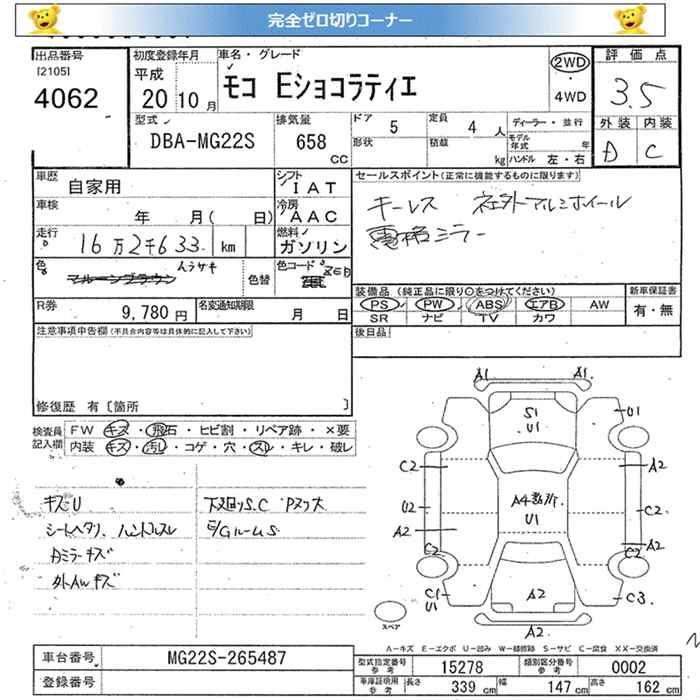 完全ゼロ切りコーナー
出品番号
[2105]
4062
初度登録年月
平成
20 10 月
車名・グレード
モコ Eショコラティエ
2WD
・
4WD
評価点
3.5
型式
DBA-MG22S
排気量
658
CC
ドア 5
形状
定員 4 人
積載 kg
ディーラー・並行
モデル年式 年
ハンドル 左・右
外装 内装
D C
車歴 自家用
シフト
IAT
車検 年 月( 日)
冷房
AAC
走行
16万2千633 km
燃料
ガソリン
色 マルーンブラウン ムラサキ
色替
色コード
ZED
R券 9,780 円
名変通知期限 月 日
セールスポイント(正常に機能するものに限ります)
キーレス 社外アルミホイール
電格ミラー
装備品(純正品に限り○をつけてください)
新車保証書
PS PW ABS エアB AW
有・無
SR ナビ TV カワ
後日品
注意事項申告欄(不具合内容等は具体的に記入して下さい)
修復歴 有〔箇所 〕
検査員
記入欄
FW キズ・飛石・ヒビ割・リペア跡・×要
内装 キズ・汚し・コゲ・穴・スレ・キレ・破レ
キズU
シートヘタリ、ハンドルスレ
カミラーキズ
外AWキズ
下廻りS.C Pヌケ大
E/GルームS
A1. A1.
S1
U1
U1
C2 A2
U2 A4数ヶ所 C2
U1
A2 A2
C2 C2
C1 A2 C3
U1
A2
スペア
A-キズ E-エクボ U-凹み W-補修跡 S-サビ C-腐食 XX-交換済
車台番号 MG22S-265487
登録番号
型式指定番号
参考
15278
類別区分番号
参考
0002
車庫証明用
参考
長さ 339 cm 幅 147 cm 高さ 162 cm